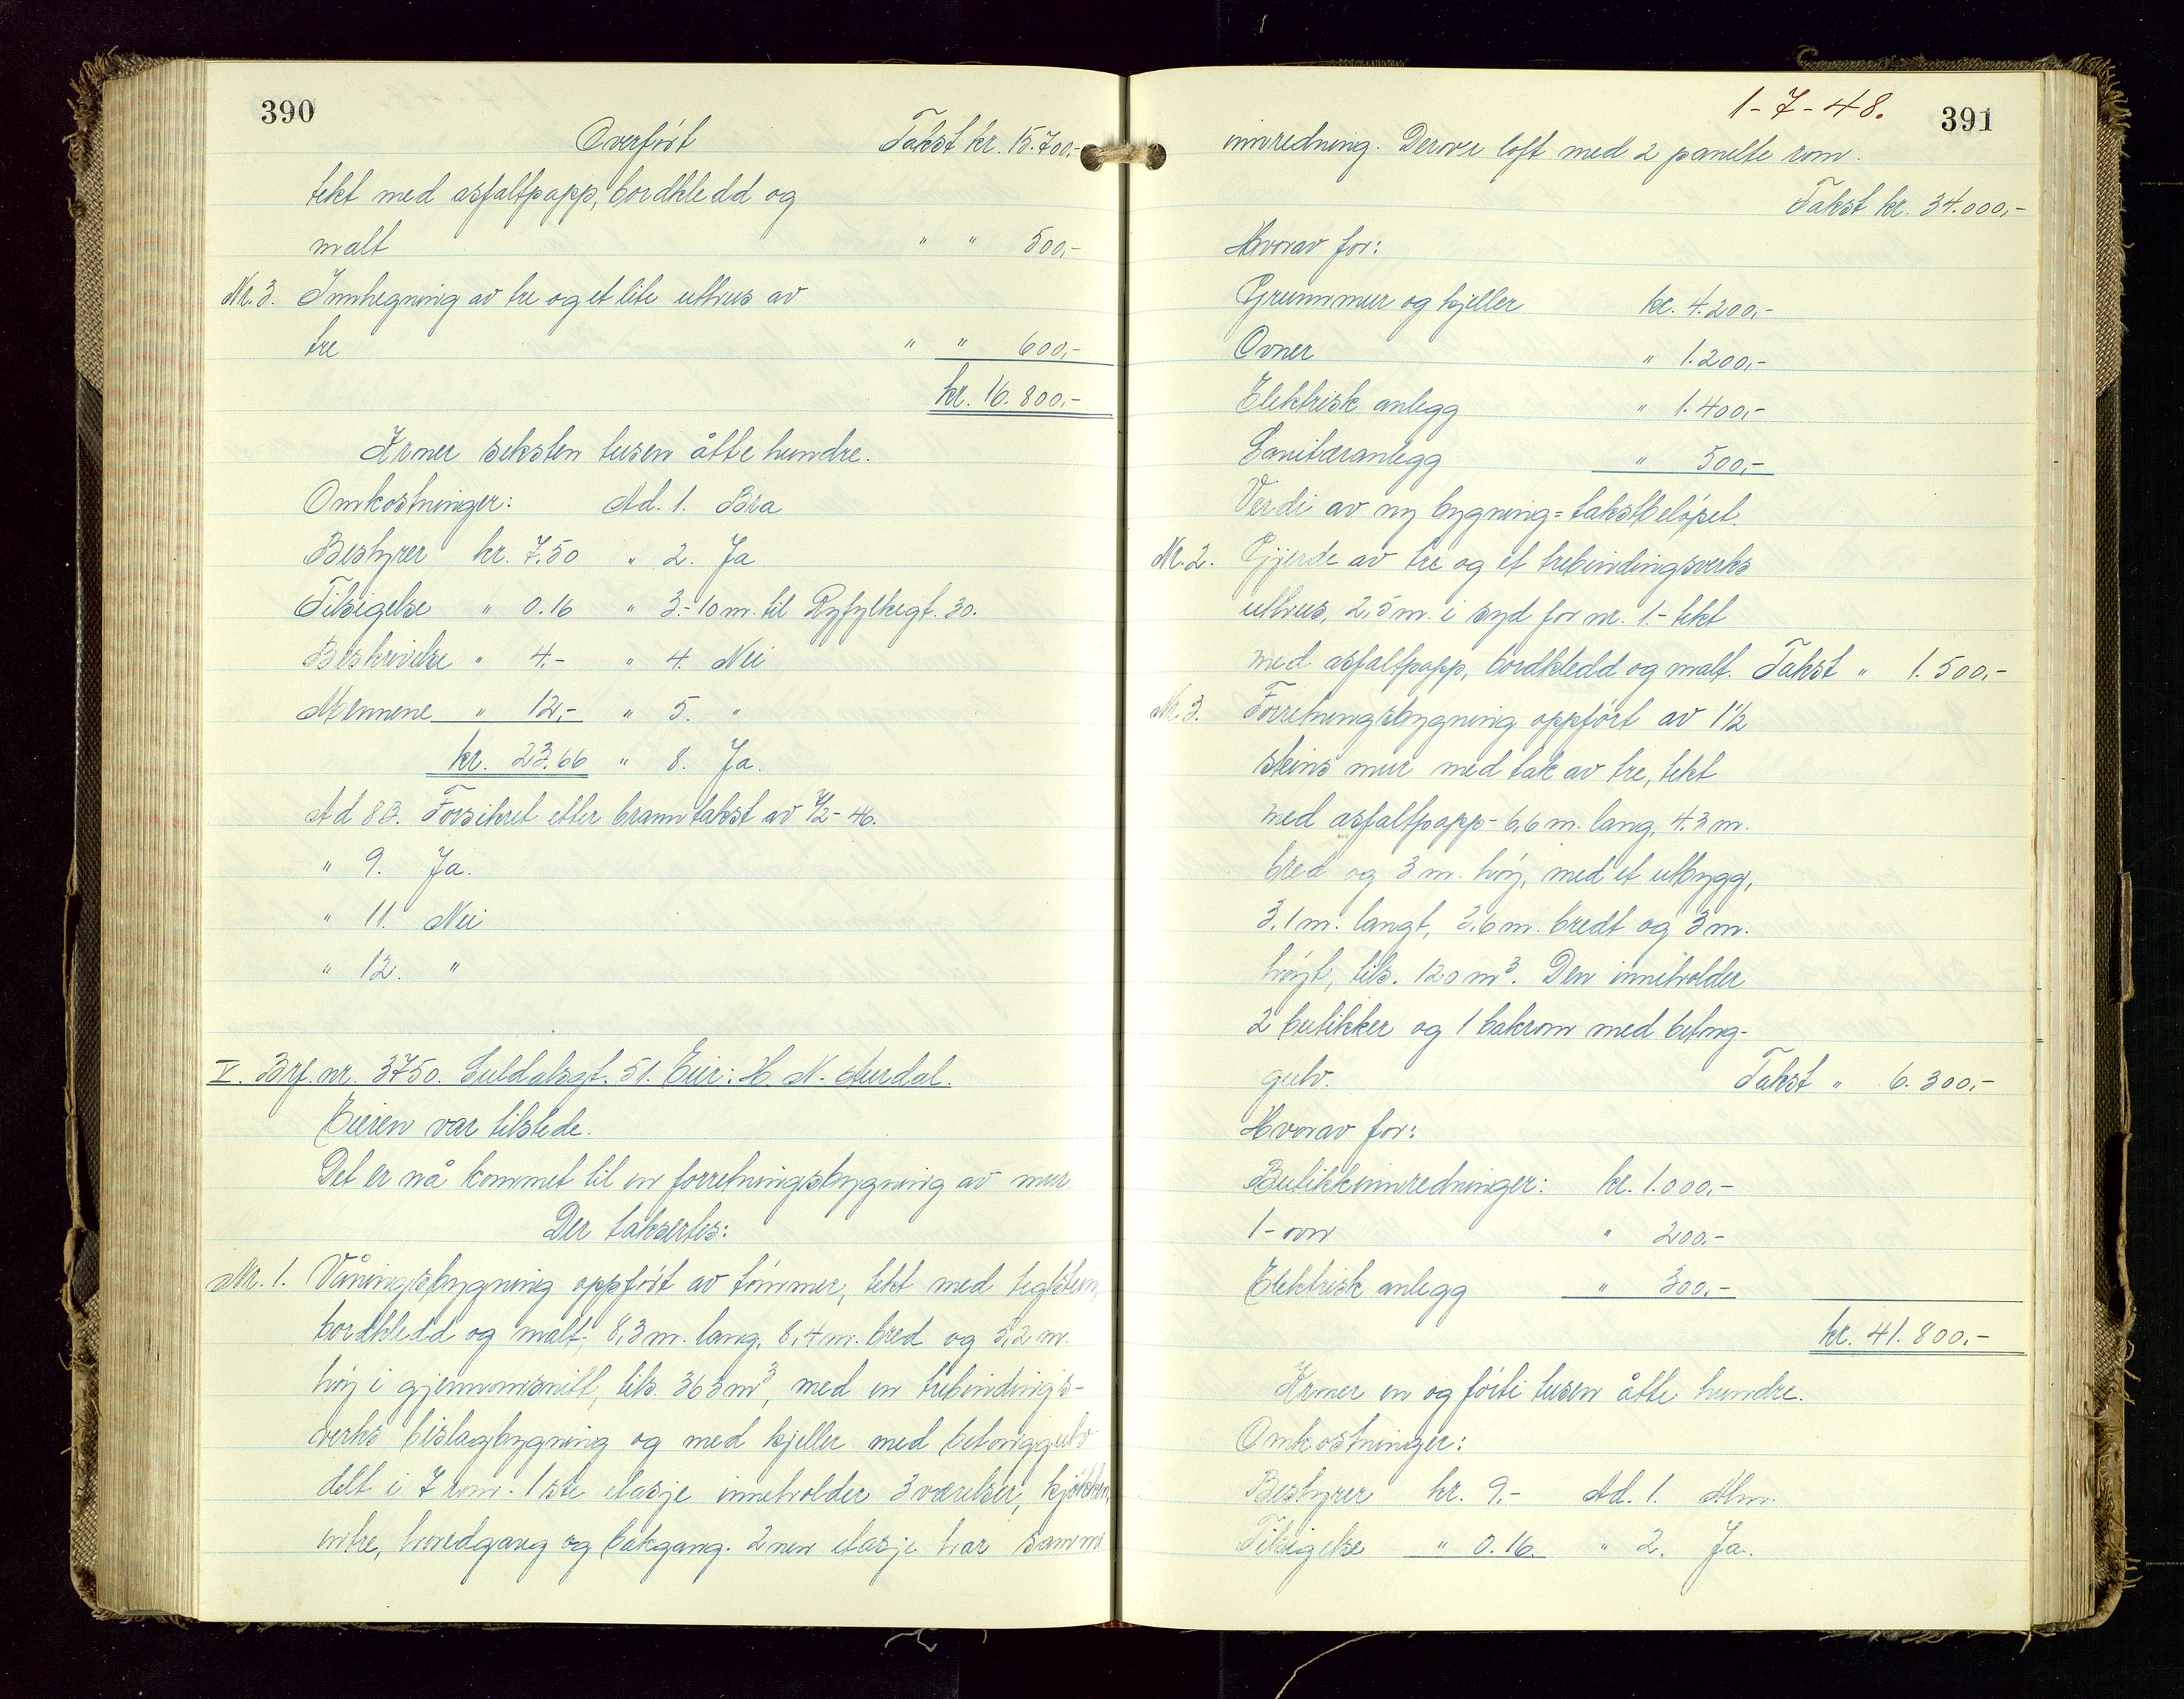 390
Overført Takst kr. 15.700,-
tekt med asfaltpapp, bordkledd og
malt " " 500,-
Nr. 3. Innhegning av tre og et lite uthus av
tre " " 600,-
kr. 16.800,-
Kroner seksten tusen åtte hundre.
Omkostninger: Ad. 1. Bra
Bestyrer kr. 7.50 " 2. Ja
Tilsigelse " 0.16 " 3.- 10 m. til Ryfylkegt. 30.
Beskrivelse " 4.- " 4. Nei
Mennene " 12,- " 5. "
kr. 23.66 " 8. Ja.
Ad 8B. Forsikret etter branntakst av /2-46.
" 9. Ja.
" 11. Nei
" 12. "
V. Brf. nr. 3750. Suldalsgt. 51. Eier: H. N. Aurdal.
Eieren var tilstede.
Det er nå kommet til en forretningsbygning av mur.
Der takseres:
Nr. 1. Våningsbygning oppført av tømmer, tekt med teglstein,
bordkledd og malt, 8,3 m. lang, 8,4 m. bred og 5,2 m.
høy i gjennomsnitt, tils. 363 m³, med en trebindings-
verks bislagbygning og med kjeller med betonggulv
delt i 7 rom. 1ste etasje inneholder 3 værelser, kjøkken,
entre, hovedgang og bakgang. 2nen etasje har samme
1-7-48. 391
innredning. Derover loft med 2 panelte rom.
Takst kr. 34.000,-
Hvorav for:
Grunnmur og kjeller kr. 4.200,-
Ovner " 1.200,-
Elektrisk anlegg " 1.400,-
Sanitæranlegg " 500,-
Verdi av ny bygning = takstbeløpet.
Nr. 2. Gjerde av tre og et trebindingsverks
uthus, 2,5 m. i syd for nr. 1.- tekt
med asfaltpapp, bordkledd og malt. Takst " 1.500,-
Nr. 3. Forretningsbygning oppført av 1½
steins mur med tak av tre, tekt
med asfaltpapp - 6,6 m. lang, 4.3 m.
bred og 3 m. høy, med et utbygg,
3,1 m. langt, 3,6 m. bredt og 3 m.
høyt, tils. 120 m³. Den inneholder
2 butikker og 1 bakrom med betong-
gulv. Takst " 6.300,-
Hvorav for:
Butikkinnredninger: kr. 1.000,-
1- ovn " 200.-
Elektrisk anlegg " 300,-
kr. 41.800,-
Kroner en og førti tusen åtte hundre.
Omkostninger:
Bestyrer kr. 9.- Ad. 1. Alm.
Tilsigelse " 0.16. " 2. Ja.